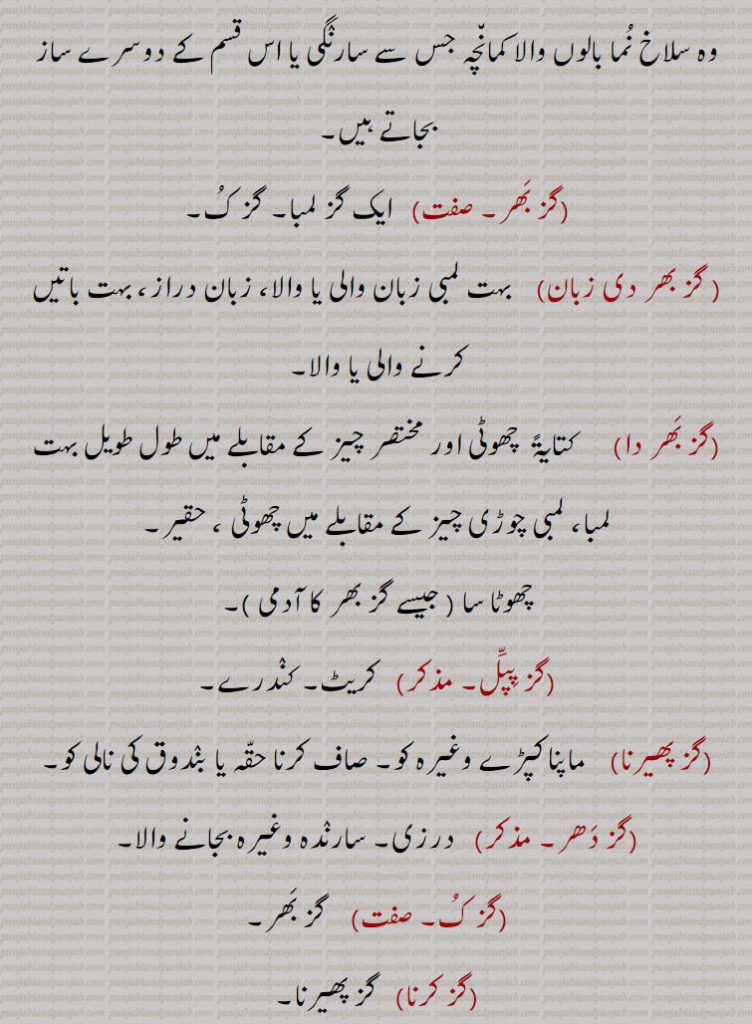 وہ سلاخ نُما بالوں والا کمانّچہ جس سے سارنگی یا اس قسم کے دوسرے ساز
بجاتے ہیں۔
(گز بَھر۔ صفت) ایک گز لمبا۔ گز کُ۔
( گز بھر دی زبان) بہت لمبی زبان والی یا والا، زبان دراز، بہت باتیں
کرنے والی یا والا۔
(گز بَھر دا) کنایۃً چھوٹی اور مختصر چیز کے مقابلے میں طول طویل بہت
لمبا، لمبی چوڑی چیز کے مقابلے میں چھوٹی ، حقیر۔
چھوٹا سا ( جیسے گز بھر کا آدمی )۔
(گز پِپِّل۔ مذکر) کریٹ۔ کنْدرے۔
(گز پھیرنا) ماپنا کپڑے وغیرہ کو۔ صاف کرنا حقّہ یا بنْدوق کی نالی کو۔
(گز دَھر۔ مذکر) درزی۔ سارنْدہ وغیرہ بجانے والا۔
(گز کُ۔ صفت) گز بَھر۔
(گز کرنا) گز پھیرنا۔